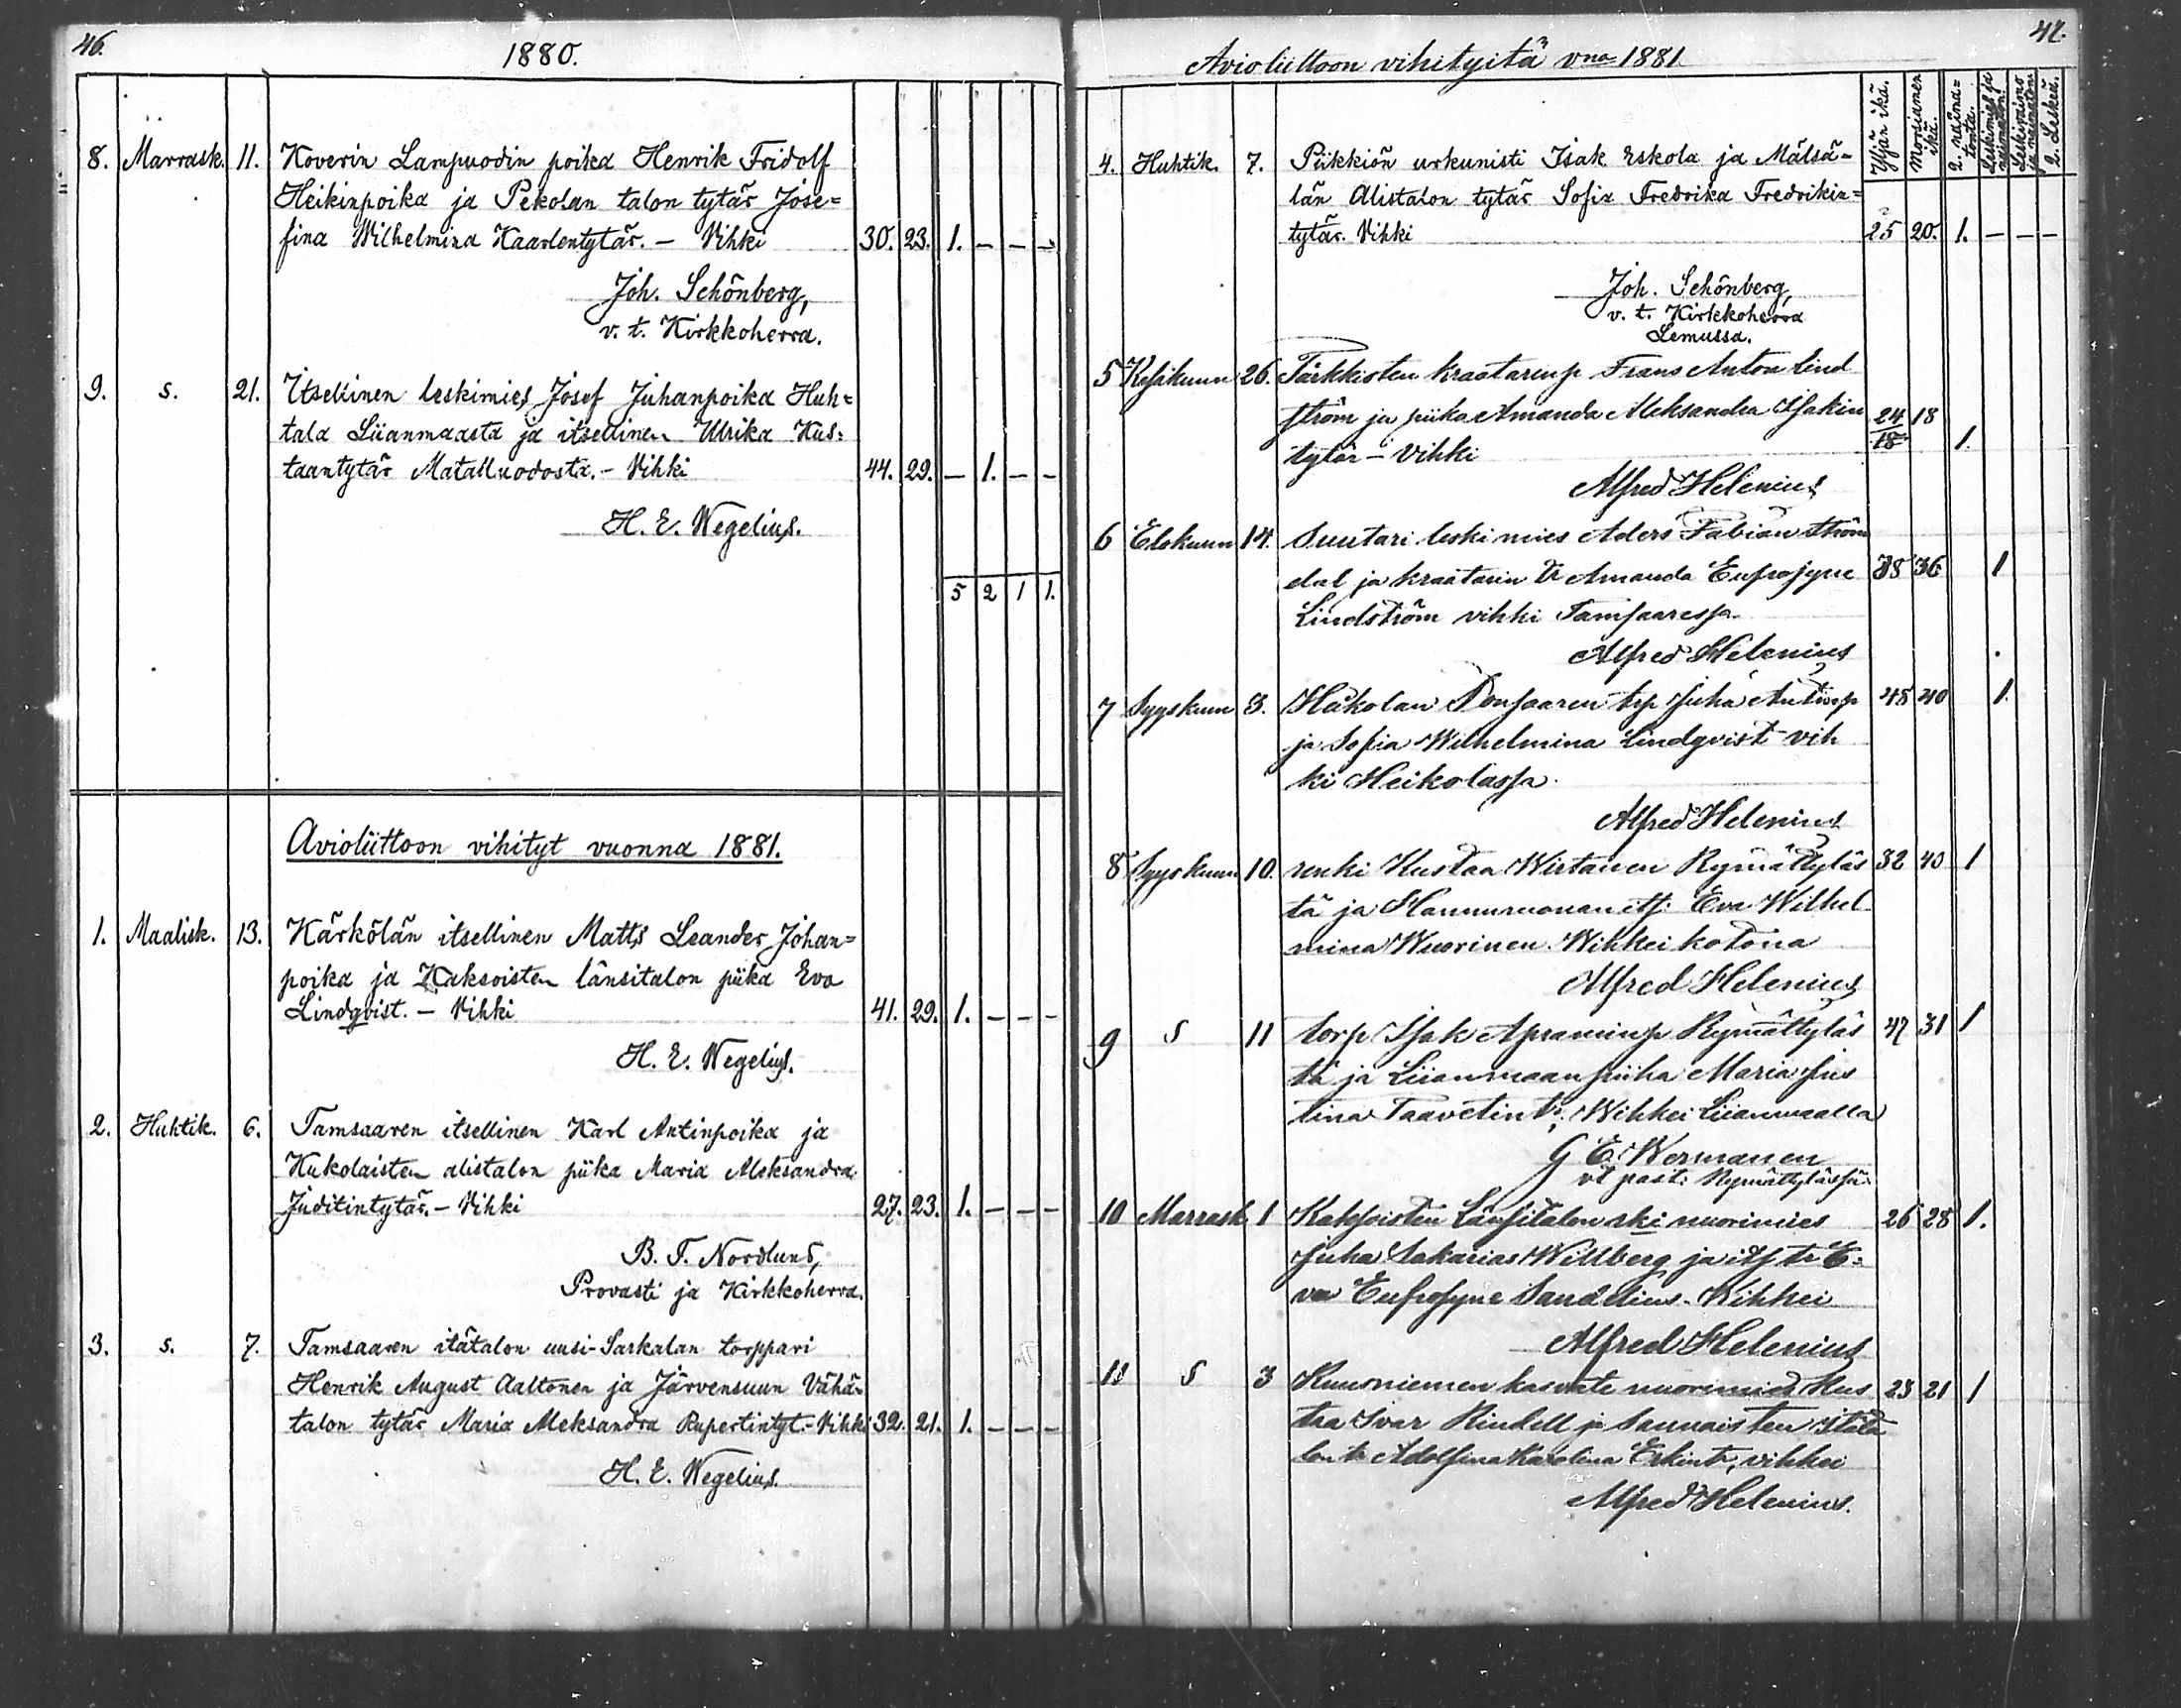 46.
1880.
8. Marrask. 11. Koverin Lampuodin poika Henrik Fridolf
Heikinpoika ja Pekolan talon tytär Jose=
fina Wilhelmina Kaarlentytär. — Vihki 30. 23. 1. — — —
Joh. Schönberg,
v. t. Kirkkoherra.
9. s. 21. Itsellinen leskimies Josef Juhanpoika Huh=
tala Liianmaasta ja itsellinen Ulrika Kus=
taantytär Matalluodosta. — Vihki 44. 29. — 1. — —
H. E. Wegelius.
5 2 1 1.
Avioliittoon vihityt vuonna 1881.
1. Maalisk. 13. Kärkölän itsellinen Matts Leander Johan=
poika ja Kaksoisten länsitalon piika Eva
Lindqvist. — Vihki 41. 29. 1. — — —
H. E. Wegelius.
2. Huhtik. 6. Tamsaaren itsellinen Karl Antinpoika ja
Kukolaisten alistalon piika Maria Aleksandra
Juditintytär. — Vihki 27. 23. 1. — — —
B. F. Nordlund,
Provasti ja Kirkkoherra.
3. s. 7. Tamsaaren itätalon uusi-Sarkalan torppari
Henrik August Aaltonen ja Järvensuun Vähä-
talon tytär Maria Aleksandra Rupertintyt. - Vihki 32. 21. 1. — — —
H. E. Wegelius.
47.
Avioliittoon vihityitä vna 1881
Yljän ikä. Morsiamen ikä. 2. naima= tonta. Leskimies ja naimaton. Leskivaimo ja naimaton. 2. Leskeä.
4. Huhtik. 7. Piikkiön urkunisti Isak Eskola ja Mälsä=
län Alistalon tytär Sofia Fredrika Fredrikin=
tytär. Vihki 25 20. 1. — — —
Joh. Schönberg,
v. t. Kirkkoherra
Lemussa.
5 Kesäkuun 26. Tärkkisten kraatarinp Frans Anton Lind
ström ja piika Amanda Aleksandra Isakin 24 18
tytär — Vihki 18 1.
Alfred Helenius
6 Elokuun 14. Suutari leskimies Aders Fabian Ström
dal ja kraatarin tr Amanda Eufrosyne 38 36 1
Lindström vihki Tamsaaressa
Alfred Helenius
7 Syyskuun 3. Heikolan Ponsaaren trp Juha Antinp 48 40 1.
ja Sofia Wilhelmina Lindqvist vih
ki Heikolassa.
Alfred Helenius
8 Syyskuun 10. renki Kustaa Wirtanen Rymättyläs 32 43 1
tä ja Hannurvonan its. Eva Wilhel
mina Wuorinen. Wihkei kotona
Alfred Helenius
9 S 11 torp Isak Apraminp Rymättyläs 47 31 1
tä ja Liianmaan piika Maria Jus
tina Taavetint; Wihkei Liianmaalla
G E Wermanen
vt past: Rymättylässä.
10 Marrask 1 Kaksoisten Länsitalon rki nuorimies 26 28 1.
Juha Sakarias Willberg ja its tr E=
va Eufrosyne Sandelius. Wihkei
Alfred Helenius
11 S 3 Kuusniemen kasvate nuorimies Kus 23 21 1
taa Ivar Rindell ja Saunaisten Itäta
lon tr Adolfina Karolina Erkintr, vihkei
Alfred Helenius.